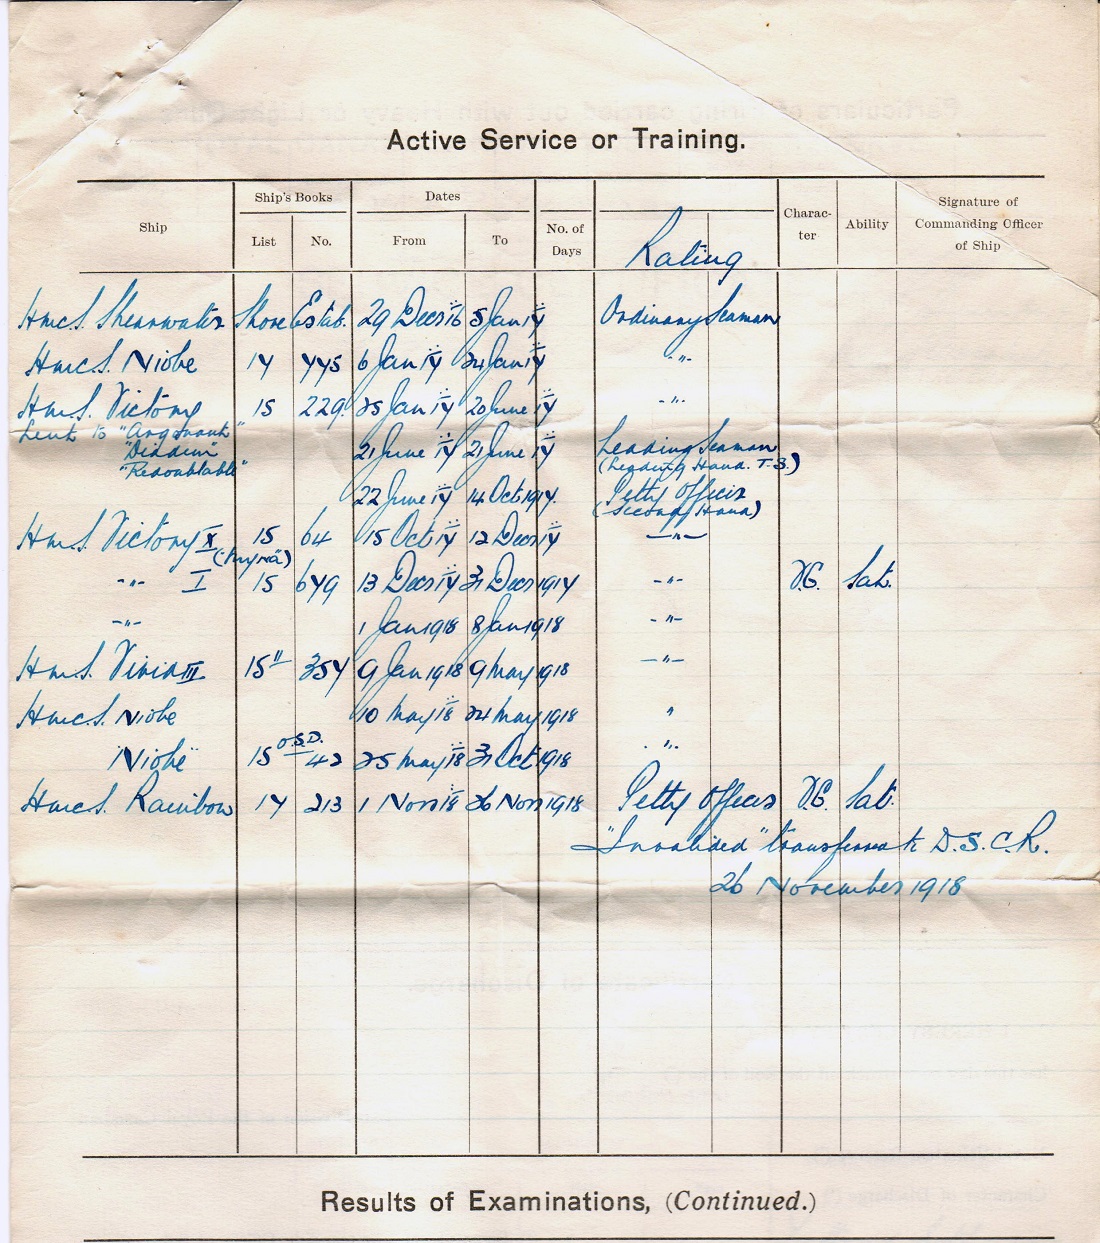 Active Service or Training.
Ship Ship's Books Dates No. of Days Rating Charac-ter Ability Signature of Commanding Officer of Ship
List No. From To
H.M.C.S. Shearwater Shore Estab. 29 Decr 16 5 Jan 17 Ordinary Seaman
H.M.C.S. Niobe 17 775 6 Jan 17 24 Jan 17 "
H.M.S. Victory 15 229 25 Jan 17 20 June 17 "
Lent to "Argonaut"
"Diadem" 21 June 17 21 June 17 Leading Seaman
"Redoubtable" (Leading Hand. T.S.)
22 June 17 14 Oct 1917. Petty Officer
(Second Hand)
H.M.S. Victory X 15 64 15 Oct 17 12 Decr 17 "
" I 15 679 13 Decr 17 31 Decr 1917 " V.G. Sat.
" 1 Jan 1918 8 Jan 1918 "
H.M.S. Vivid III 15" 357 9 Jan 1918 9 May 1918 "
H.M.C.S. Niobe 10 May 18 24 May 1918 "
"Niobe" 15 O.S.D. 42 25 May 18 31 Oct 1918 "
H.M.C.S. Rainbow 17 213 1 Nov 18 26 Nov 1918 Petty Officer V.G. Sat.
"Invalided" transferred to D.S.C.R.
26 November 1918
Results of Examinations, (Continued.)